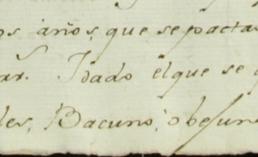 os años, que se pacta
ar. Dado el que se
les, Bacuno, obejuno